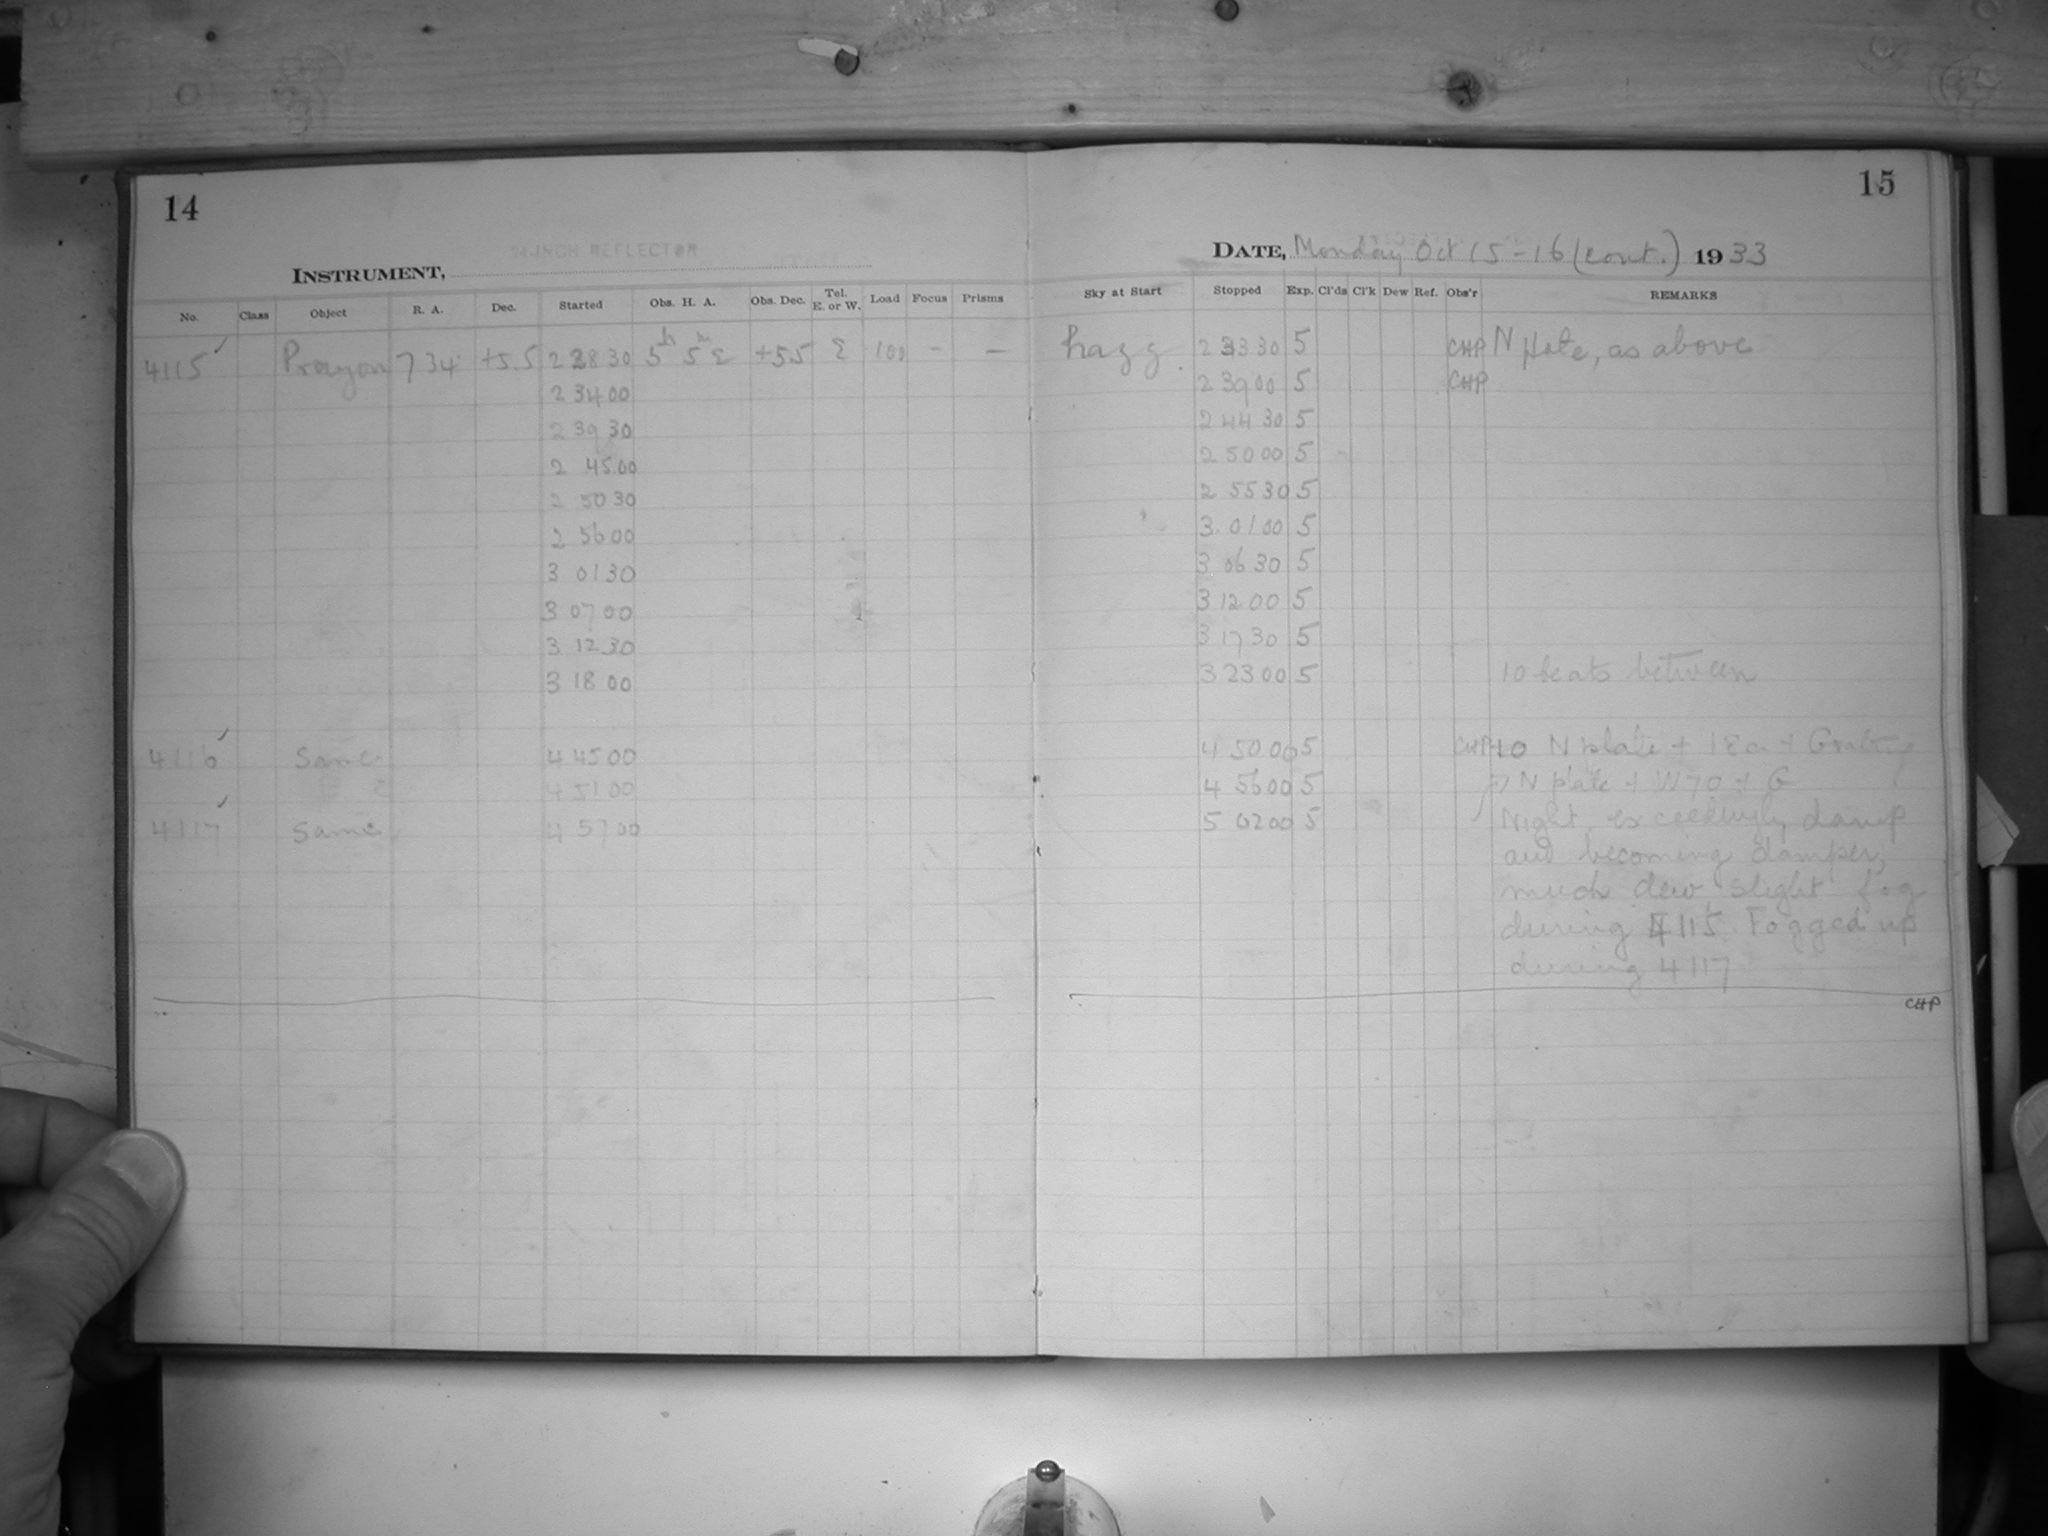 14
15
24-INCH REFLECTOR
INSTRUMENT,
DATE, Monday Oct 15-16 (cont.) 1933
No. Class Object R. A. Dec. Started Obs. H. A. Obs. Dec. Tel. E. or W. Load Focus Prisms Sky at Start Stopped Exp. Cl'ds Cl'k Dew Ref. Obs'r REMARKS
4115 ✓ Procyon 7 34 +5.5 2 28 30 5h 5m E +5.5 E 100 - — hazy 2 33 30 5 CHP N plate, as above
2 34 00 2 39 00 5 CHP
2 39 30 2 44 30 5
2 45 00 2 50 00 5
2 50 30 2 55 30 5
2 56 00 3 01 00 5
3 01 30 3 06 30 5
3 07 00 3 12 00 5
3 12 30 3 17 30 5
3 18 00 3 23 00 5 10 beats between
4116 ✓ Same 4 45 00 4 50 00 5 CHP N plate + + Grating
4 51 00 4 56 00 5 N plate + W70 + G
4117 ✓ Same 4 57 00 5 02 00 5 Night exceedingly damp
and becoming damper,
much dew, slight fog
during 4115. Fogged up
during 4117
CHP